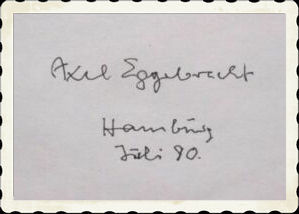 Axel Eggebrecht
Hamburg
Juli 90.